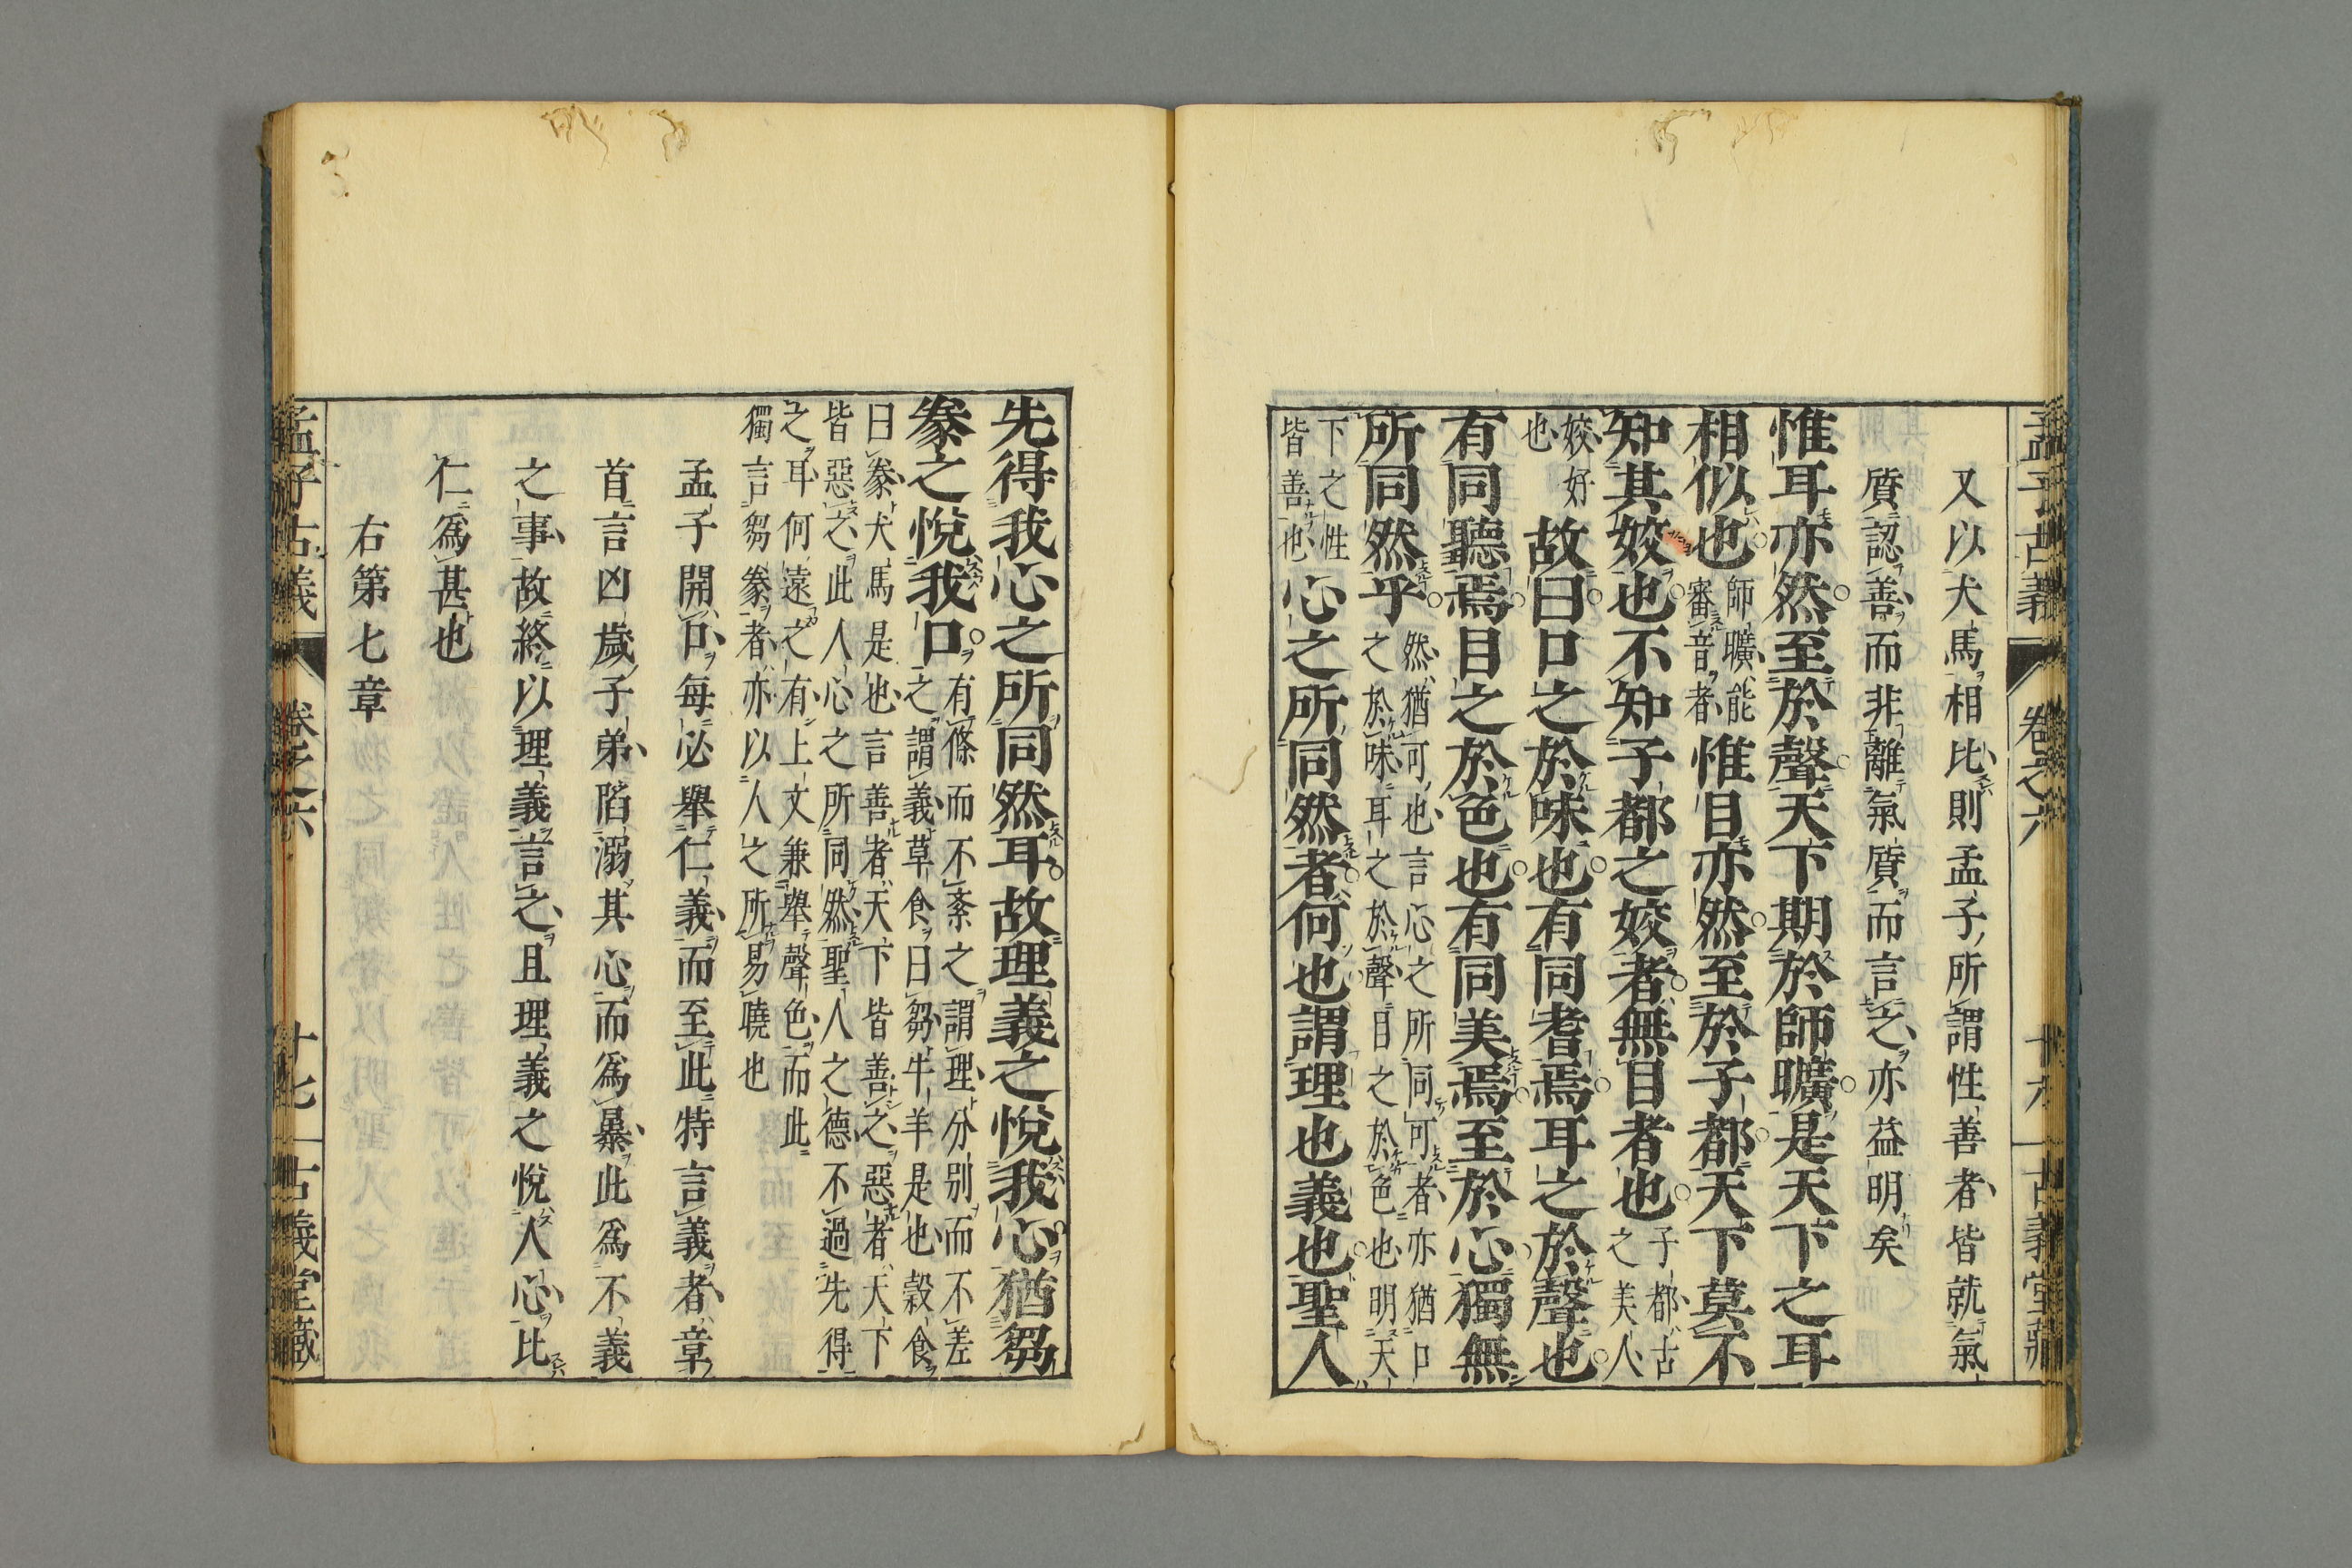 孟子古義　卷之六　十六　古義堂藏
又以犬馬相比則孟子所謂性善者皆就氣
質認善而非離氣質而言之亦益明矣
惟耳亦然至於聲天下期於師曠是天下之耳
相似也師曠能審音者惟目亦然至於子都天下莫不
知其姣也不知子都之姣者無目者也子都古之美人
姣好也故曰口之於味也有同耆焉耳之於聲也
有同聽焉目之於色也有同美焉至於心獨無
所同然乎然猶可也言心之所同可者亦猶口之於味耳之於聲目之於色也明天
下之性皆善也心之所同然者何也謂理也義也聖人
先得我心之所同然耳故理義之悅我心猶芻
豢之悅我口有條而不紊之謂理分別而不差之謂義草食曰芻牛羊是也穀食
曰豢犬馬是也言善者天下皆善之惡者天下皆惡之此人心之所同然聖人之德不過先得
之耳何遠之有上文兼舉聲色而此獨言芻豢者亦以人之所易曉也
孟子開口每必舉仁義而至此特言義者章
首言凶歲子弟陷溺其心而為暴此為不義
之事故終以理義言之且理義之悅人心比
仁為甚也
右第七章
孟子古義　卷之六　十七　古義堂藏